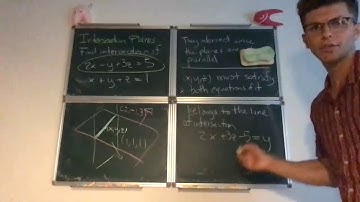 Intersecting Planes
Find intersection of
2x - y + 3z = 5
x + y + z = 1
They intersect since
the planes are
parallel
x, y, z must satisfy
both equations if it
(x, y, z)
(1, 1, 1)
belongs to the line
of intersection
2x + 3z - 5 = y